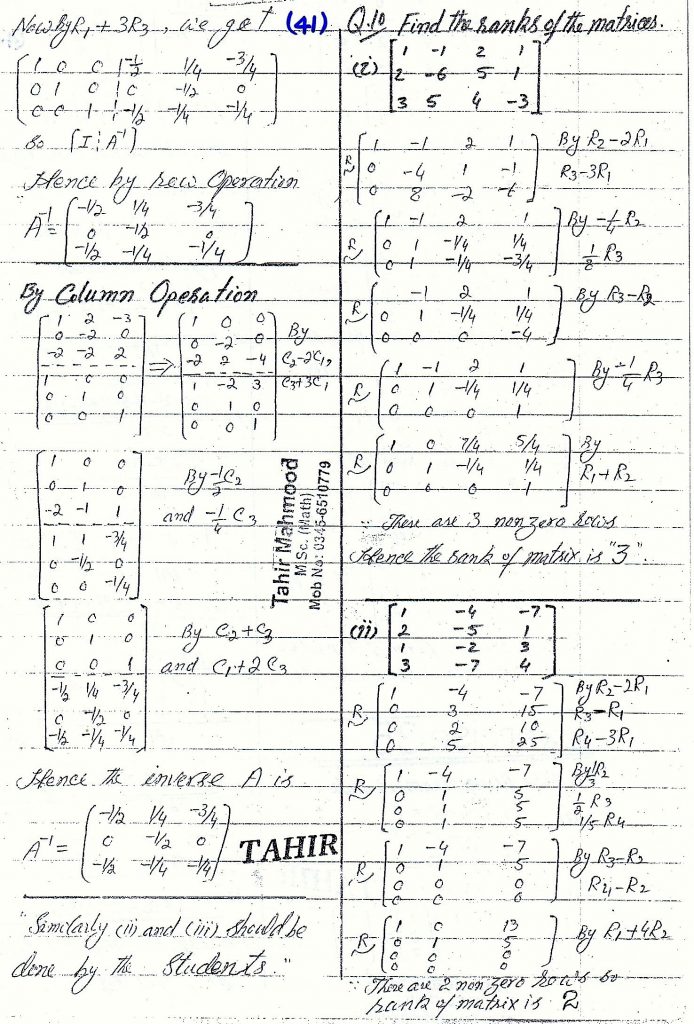 Now by R₁ + 3R₃, we get
[ 1 0 0 | -1/2 1/4 -3/4
0 1 0 | 0 -1/2 0
0 0 1 | -1/2 -1/4 -1/4 ]
So [I | A⁻¹]
Hence by row Operation
A⁻¹ = [ -1/2 1/4 -3/4
0 -1/2 0
-1/2 -1/4 -1/4 ]
By Column Operation
[ 1 2 -3
0 -2 0
-2 -2 2
1 0 0
0 1 0
0 0 1 ]
⇒ [ 1 0 0
0 -2 0
-2 2 -4
1 -2 3
0 1 0
0 0 1 ]
By
C₂-2C₁,
C₃+3C₁
[ 1 0 0
0 1 0
-2 -1 1
1 1 -3/4
0 -1/2 0
0 0 -1/4 ]
By -1/2 C₂
and -1/4 C₃
[ 1 0 0
0 1 0
0 0 1
-1/2 1/4 -3/4
0 -1/2 0
-1/2 -1/4 -1/4 ]
By C₂+C₃
and C₁+2C₃
Hence the inverse A is
A⁻¹ = [ -1/2 1/4 -3/4
0 -1/2 0
-1/2 -1/4 -1/4 ]
TAHIR
"Similarly (ii) and (iii) should be
done by the Students."
Tahir Mahmood
M.Sc. (Math)
Mob No: 0345-6510779
(41)
Q.10 Find the ranks of the matrices.
(i) [ 1 -1 2 1
2 -6 5 1
3 5 4 -3 ]
R~ [ 1 -1 2 1 By R₂-2R₁
0 -4 1 -1 R₃-3R₁
0 8 -2 -6 ]
R~ [ 1 -1 2 1 By -1/4 R₂
0 1 -1/4 1/4 1/8 R₃
0 1 -1/4 -3/4 ]
R~ [ -1 2 1 By R₃-R₂
0 1 -1/4 1/4
0 0 0 -4 ]
R~ [ 1 -1 2 1 By -1/4 R₃
0 1 -1/4 1/4
0 0 0 1 ]
R~ [ 1 0 7/4 5/4 By
0 1 -1/4 1/4 R₁+R₂
0 0 0 1 ]
∵ There are 3 non zero rows
Hence the rank of matrix is "3".
(ii) [ 1 -4 -7
2 -5 1
1 -2 3
3 -7 4 ]
R~ [ 1 -4 -7 By R₂-2R₁
0 3 15 R₃-R₁
0 2 10 R₄-3R₁
0 5 25 ]
R~ [ 1 -4 -7 By 1/3 R₂
0 1 5 1/2 R₃
0 1 5 1/5 R₄
0 1 5 ]
R~ [ 1 -4 -7 By R₃-R₂
0 1 5 R₄-R₂
0 0 0
0 0 0 ]
R~ [ 1 0 13 By R₁+4R₂
0 1 5
0 0 0
0 0 0 ]
∵ There are 2 non zero rows so
rank of matrix is 2